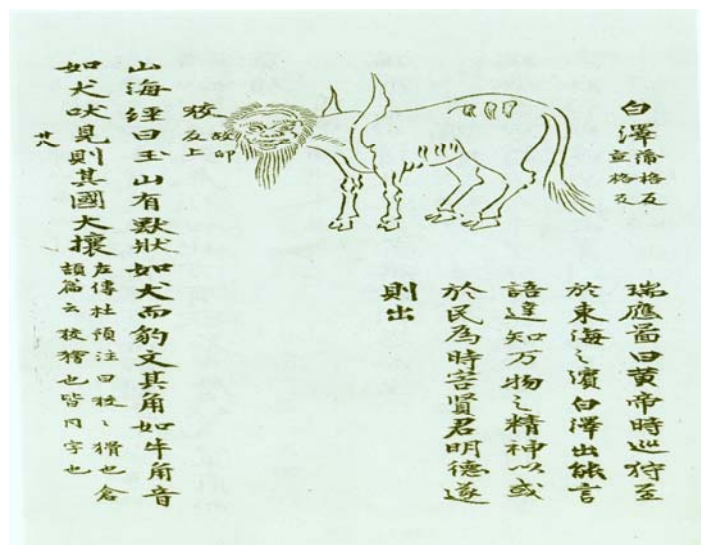 白澤
蒲格反
直格反
瑞應啚曰黄帝時巡狩至
於東海之濱白澤出能言
語達知万物之精神以或
於民為時害賢君明德遂
則出
狡
故卯
反上
山海經曰玉山有獸狀如犬而豹文其角如牛角音
如犬吠見則其國大攘
左傳杜預注曰狡〻猾也倉
頡篇云狡獪也皆同字也
廿八